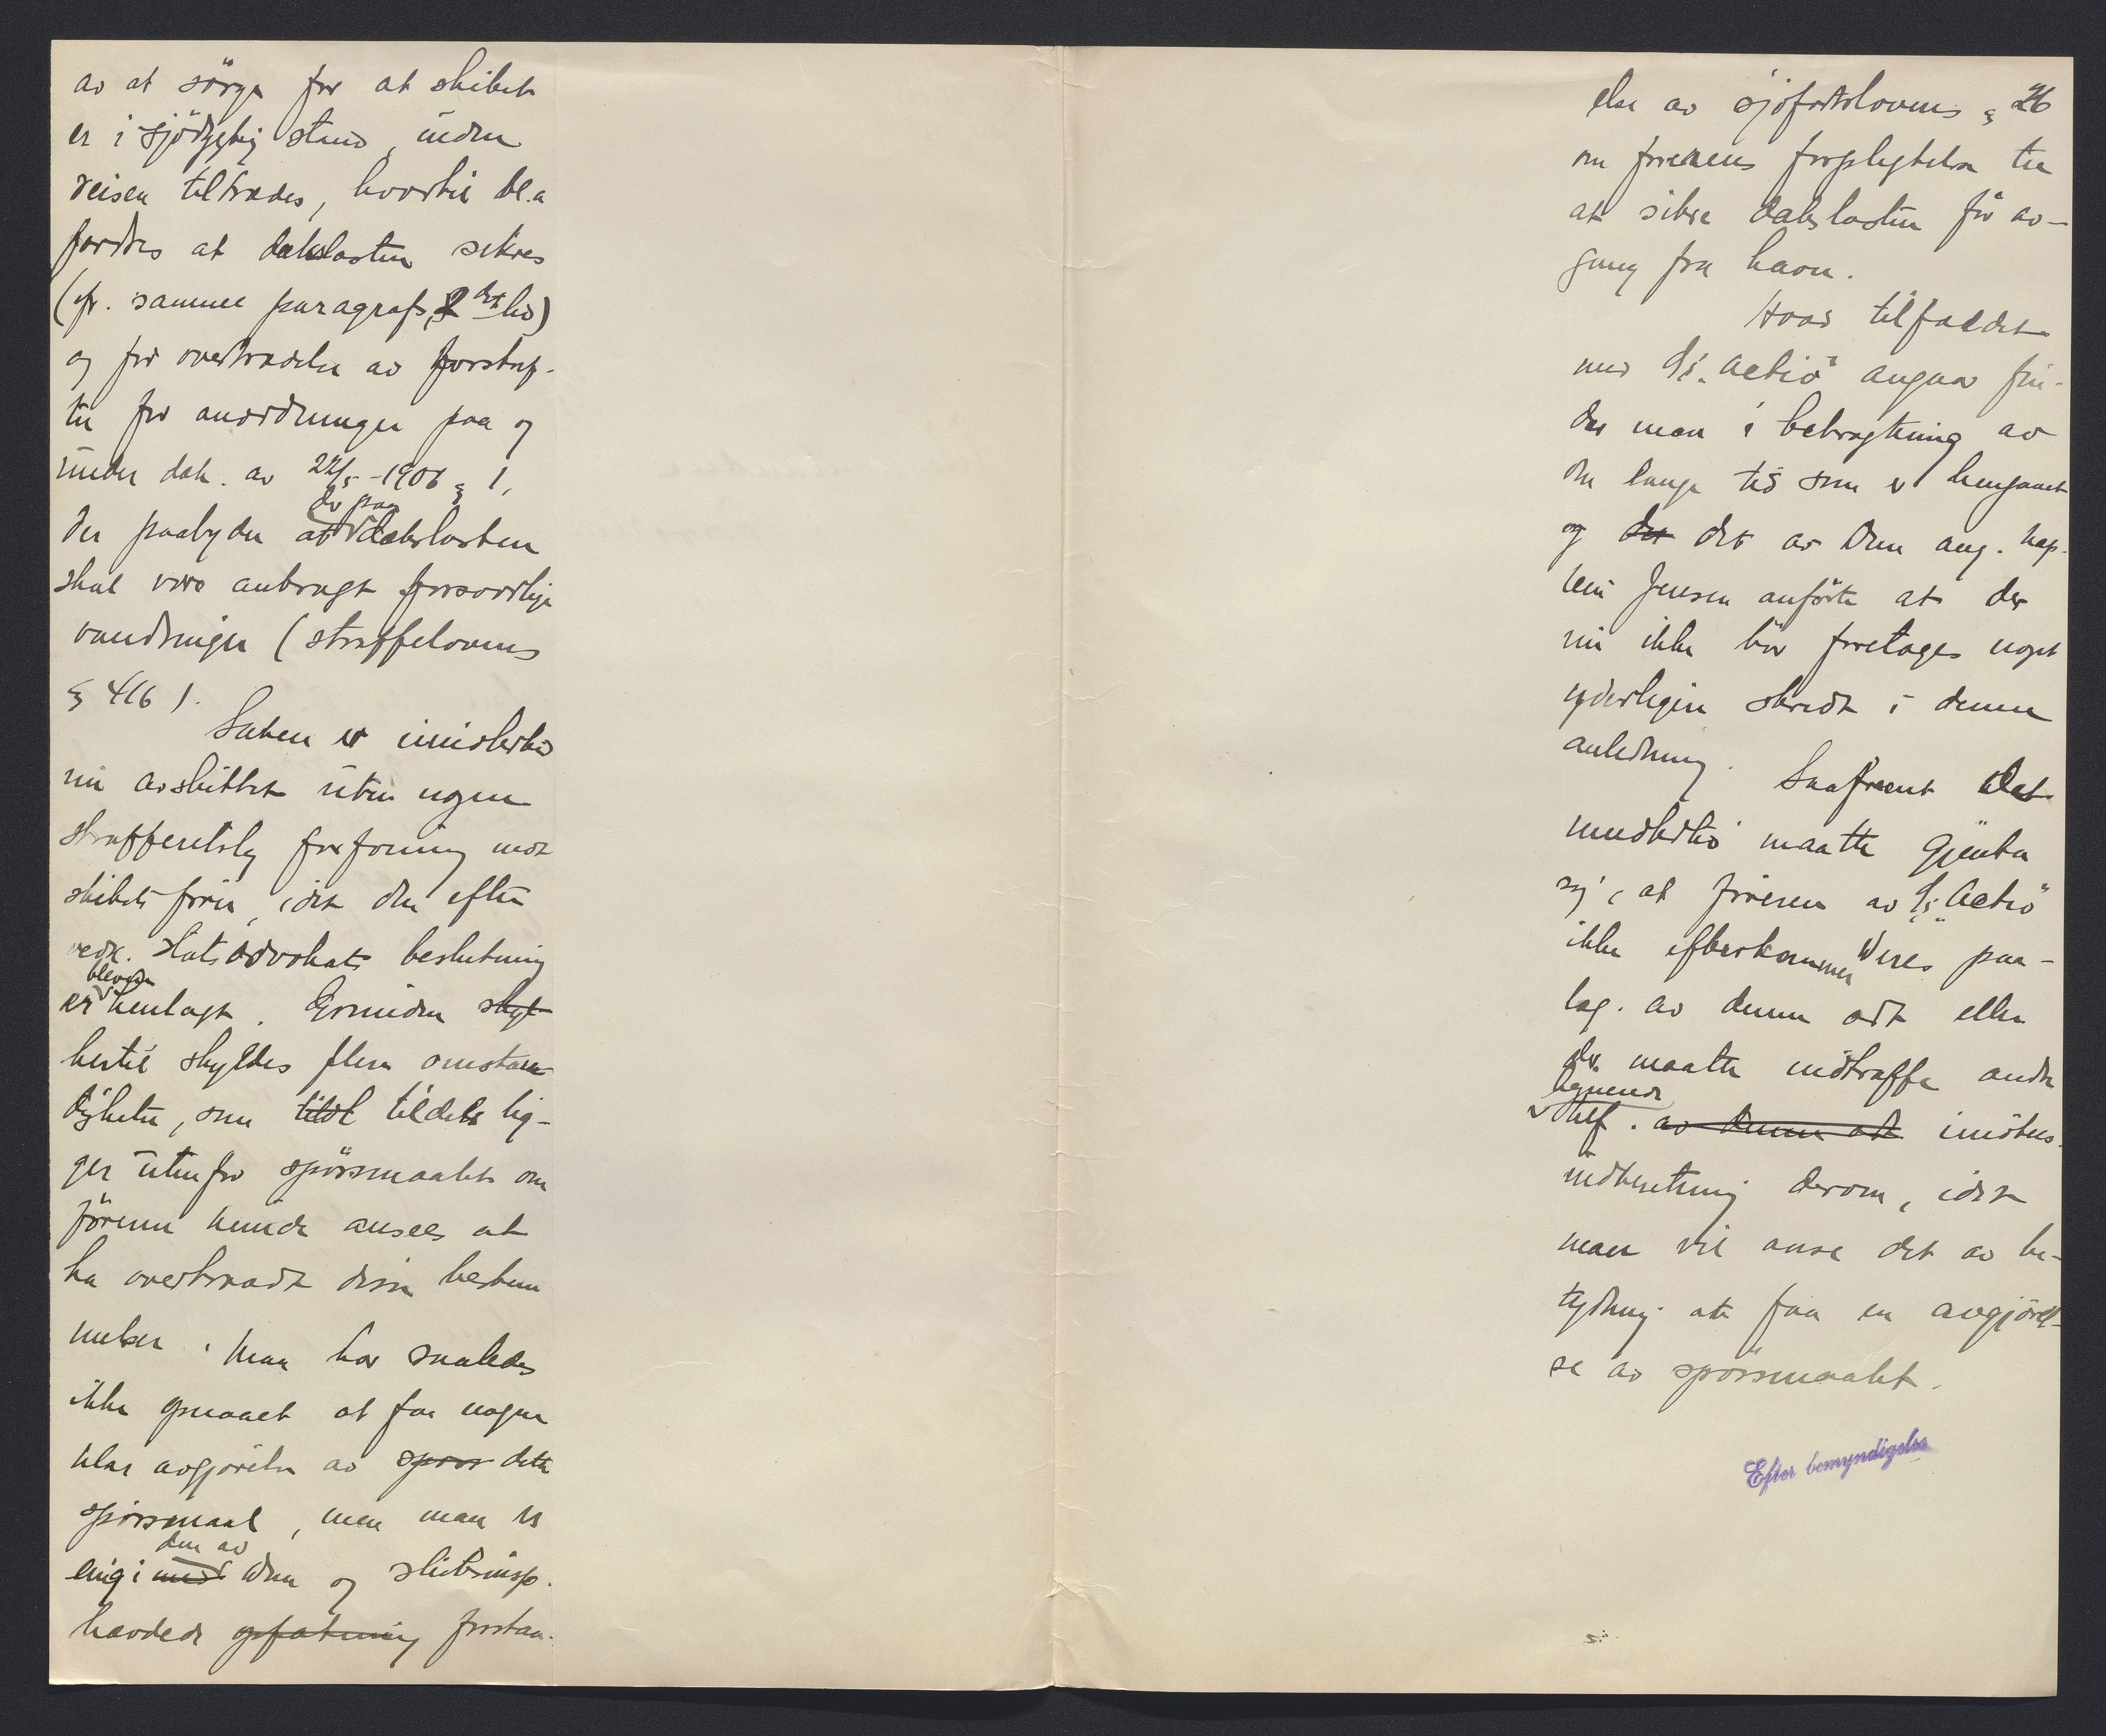 av at sörge for at skibet
er i sjödygtig stand, inden
reisen tiltrædes, hvortil bl.a
fordres at dækslasten sikres
(cfr. samme paragraf, 2det led)
og for overtrædelse av forskrif-
ter for anordninger paa og
under dæk. av 22/5-1906 § 1,
der paabyder at der paa dækslasten
skal være anbragt forsvarlige
vandringer (straffelovens
§ 416).
Saken er imidlertid
nu avsluttet uten nogen
strafferetslig forføining mot
skibets förer, idet den efter
vedk. Statsadvokats beslutning
er blevet henlagt. Grunden skyl
hertil skyldes flere omstæn-
digheter, som tildl tildels lig-
ger utenfor spörsmaalet om
föreren kunde ansees at
ha overtraadt disse bestem
melser. Man har saaledes
ikke opnaaet at faa nogen
klar avgjörelse av spørs dette
spörsmaal, men man er
enig i med den av Dem og skibsinsp.
hævdede opfatning forstaa-
else av sjöfartslovens § 26
om förerens forpligtelse til
at sikre dækslasten för av-
gang fra havn.
Hvad tilfældet
med D/s. "Actiö" angaar fin-
der man i betragtning av
den lange tid som er hengaaet
og det det av Dem ang. kap-
tein Jensen anförte at der
nu ikke bör foretages noget
yderligere skridt i denne
anledning. Saafremt det
imidlertid maatte gjenta
sig, at föreren av D/s. "Actiö"
ikke efterkommer Deres paa-
læg. av denne art eller
der maatte indtræffe andre
lignende tilf. av denne art imötes.
indberetning derom, idet
man vil anse det av be-
tydning at faa en avgjörel-
se av spörsmaalet.
Efter bemyndigelse